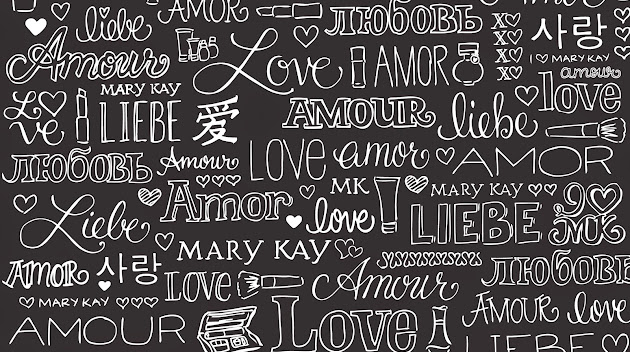 ЛЮБОВЬ
liebe
AMOR
Amour
Love
AMOR
XO
XO
XO
XO
사랑
I ♡ MARY KAY
amour
love
MARY KAY
Love
LIEBE
愛
AMOUR
liebe
ЛЮБОВЬ
Amour
LOVE
amor
AMOR
Liebe
Amor
MK
love
MARY KAY
LIEBE
MK
MARY KAY
AMOR
사랑
LOVE
Amour
ЛЮБОВЬ
MARY KAY
AMOUR
Love
AMOUR
love
LIEBE